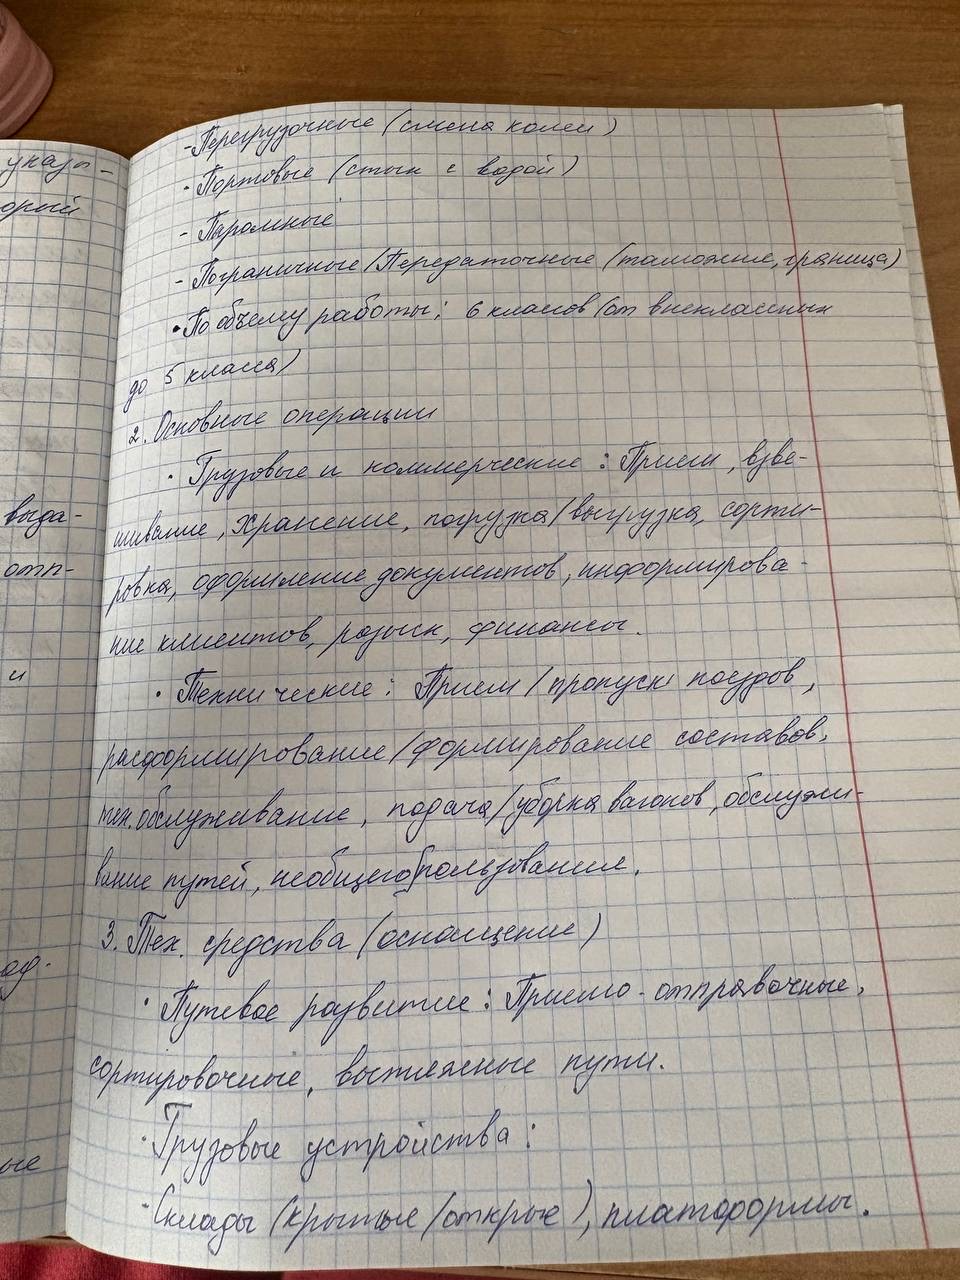 указы-
орый
выда-
отп-
и
од.
ые
- Перегрузочные (смена колеи)
- Портовые (стык с водой)
- Паромные
- Пограничные/Передаточные (таможние, граница)
• По объему работы: 6 классов (от внеклассных
до 5 класса)
2. Основные операции
• Грузовые и коммерческие: Прием, взве-
шивание, хранение, погрузка/выгрузка, сорти-
ровка, оформление документов, информирова-
ние клиентов, розыск, финансы.
• Технические: Прием/пропуск поездов,
расформирование/формирование составов,
тех.обслуживание, подача/уборка вагонов, обслужи-
вание путей, необщего пользования.
3. Тех. средства (оснащение)
• Путевое развитие: Приемо-отправочные,
сортировочные, вытяжные пути.
• Грузовые устройства:
• Склады (крытые/открые), платформы.